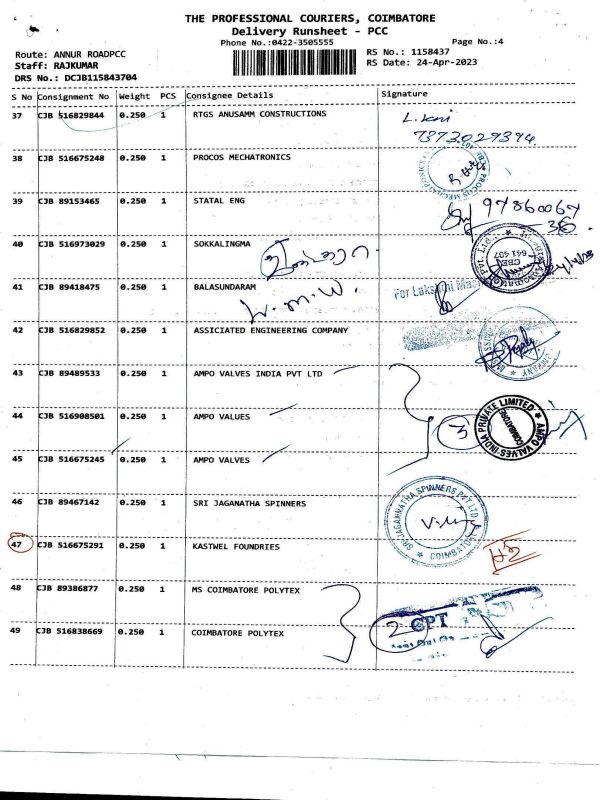 THE PROFESSIONAL COURIERS, COIMBATORE
Delivery Runsheet - PCC
Phone No.:0422-3505555
Page No.:4
Route: ANNUR ROADPCC
RS No.: 1158437
Staff: RAJKUMAR
RS Date: 24-Apr-2023
DRS No.: DCJB115843704
S No Consignment No Weight PCS Consignee Details Signature
37 CJB 516829844 0.250 1 RTGS ANUSAMM CONSTRUCTIONS
7373029394
38 CJB 516675248 0.250 1 PROCOS MECHATRONICS
39 CJB 89153465 0.250 1 STATAL ENG
97860067
36
40 CJB 516973029 0.250 1 SOKKALINGMA
CBE
641 407
41 CJB 89418475 0.250 1 BALASUNDARAM
For Lakshmi
42 CJB 516829852 0.250 1 ASSICIATED ENGINEERING COMPANY
43 CJB 89489533 0.250 1 AMPO VALVES INDIA PVT LTD
44 CJB 516908501 0.250 1 AMPO VALUES
3
AMPO VALVES INDIA PRIVATE LIMITED
COIMBATORE
45 CJB 516675245 0.250 1 AMPO VALVES
46 CJB 89467142 0.250 1 SRI JAGANATHA SPINNERS
SRI JAGANNATHA SPINNERS PVT LTD
COIMBATORE
47 CJB 516675291 0.250 1 KASTWEL FOUNDRIES
48 CJB 89386877 0.250 1 MS COIMBATORE POLYTEX
2
CPT
49 CJB 516838669 0.250 1 COIMBATORE POLYTEX